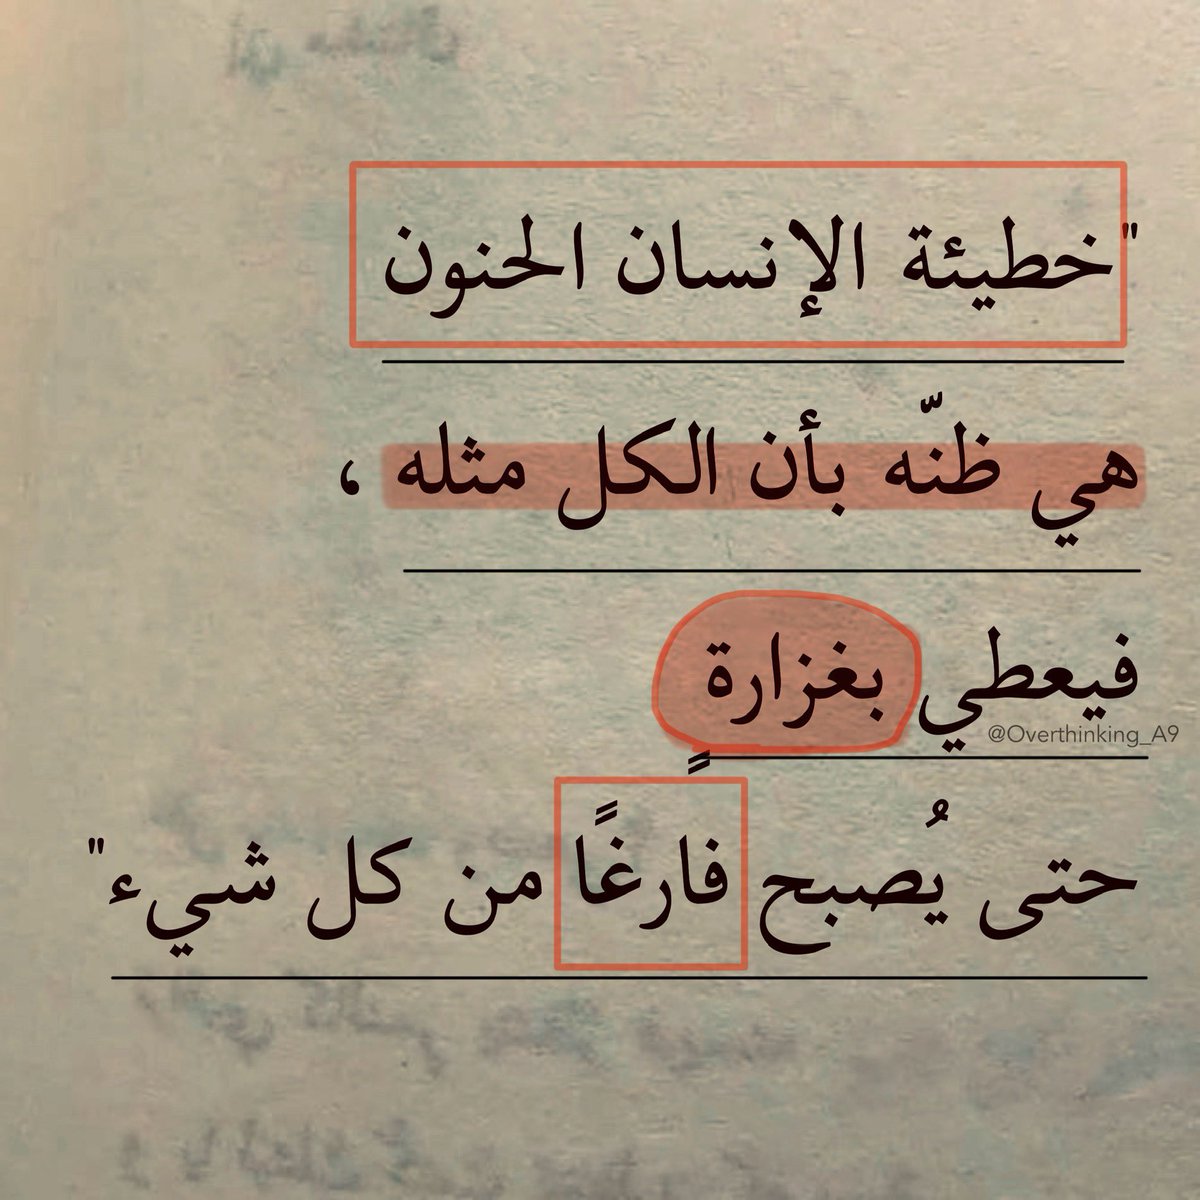 "خطيئة الإنسان الحنون
هي ظنّه بأن الكل مثله ،
فيعطي بغزارةٍ
@Overthinking_A9
حتى يُصبح فارغًا من كل شيء"